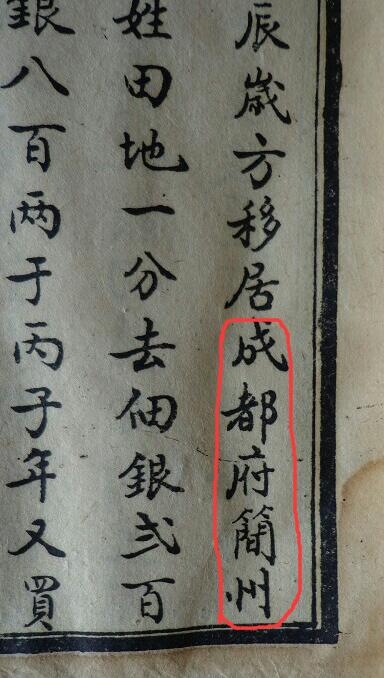 辰歲方移居成都府簡州
姓田地一分去佃銀弍百
銀八百两于丙子年又買